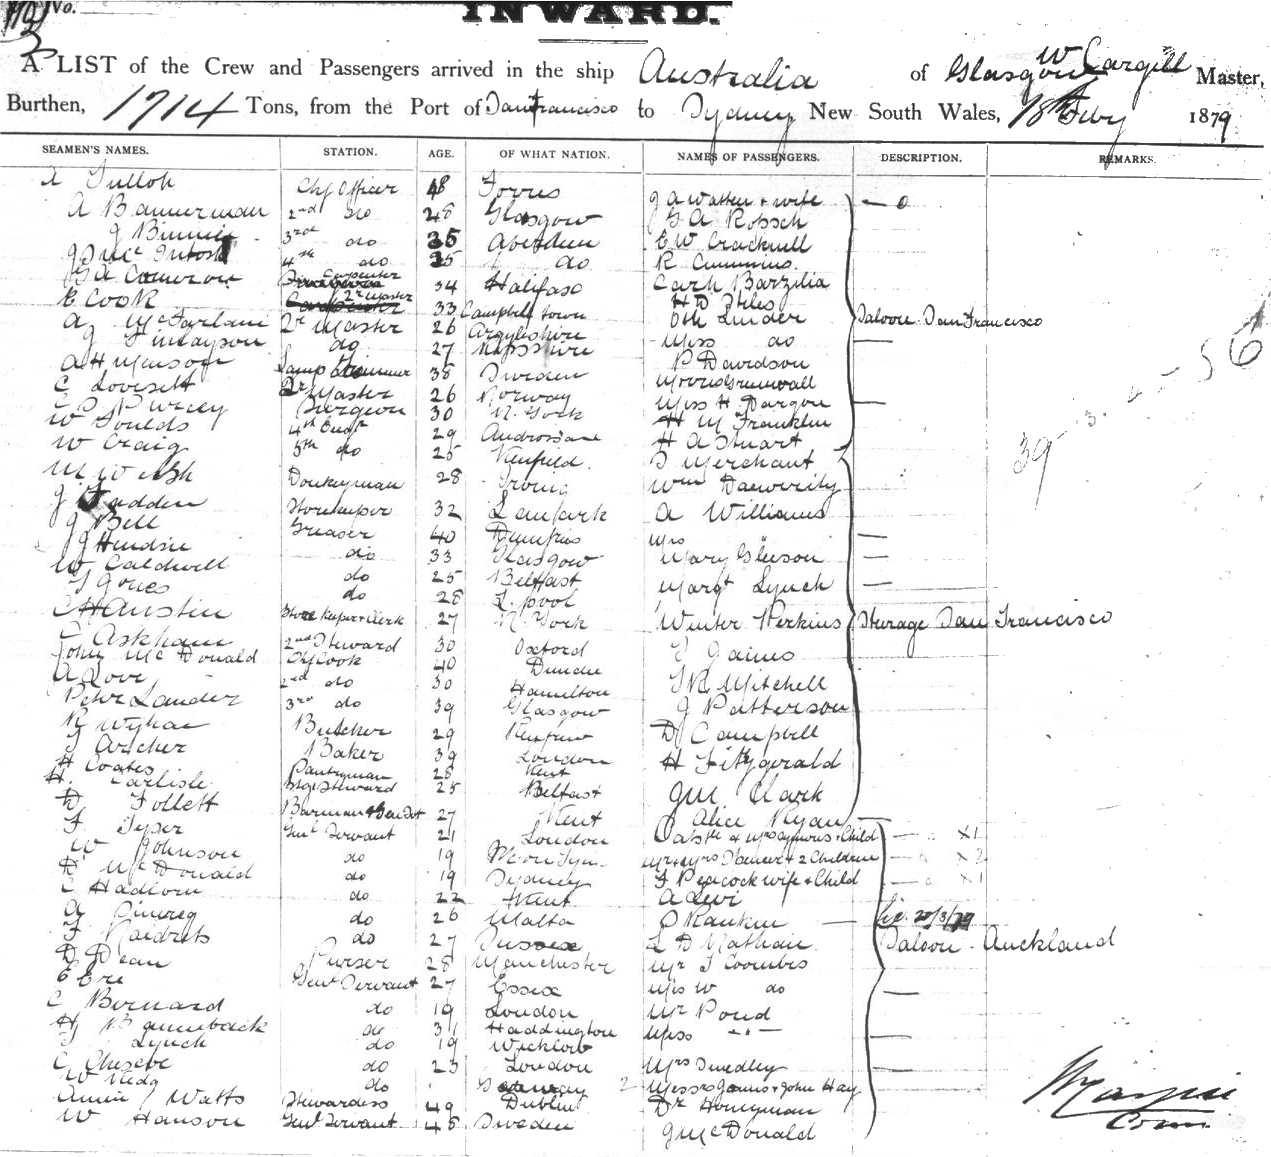 No.
INWARD.
A LIST of the Crew and Passengers arrived in the ship Australia of Glasgow W Cargill Master,
Burthen, 1714 Tons, from the Port of San Francisco to Sydney New South Wales, 18th Feby 1879
SEAMEN'S NAMES. STATION. AGE. OF WHAT NATION. NAMES OF PASSENGERS. DESCRIPTION. REMARKS.
Tulloh Chf Officer 48 Forres J A Watten & wife
A Bannerman 2nd do 28 Glasgow G A Robsch
J Binnie 3rd do 35 Aberdeen E W Cracknell
J Mc Intosh 4th do 25 do R Cummins
G A Cameron Carpenter 34 Halifax Carh Barzilia
E Cook Qr Master 33 Campbeltown H D Stiles
A McFarlane Qr Master 26 Argyleshire Oth Linder Saloon San Francisco
J Finlayson do 27 Miss do
A H Munson Lamp Trimmer 38 Sweden P Davidson
C Lovesett Qr Master 26 Norway Morris Grunwall
C P Purcey Surgeon 30 N. York Miss H Dargon
W Foulds 4th Engr 29 Androssan H M Franklin
W Craig 5th do 25 Renfield H A Stuart
M Walsh Donkeyman 28 Irving T Merchant
J Fadden Storekeeper 32 Lanark Wm Daeverity
J Bell Greaser 40 Dumfries A Williams
J Hendrie do 33 Glasgow Mrs
W Caldwell do 25 Belfast Mary Gleeson
T Jones do 28 L.pool Margt Lynch
C H Austin Storekeeper & Clerk 27 N. York Winter Perkins Sterage San Francisco
C Askham 2nd Steward 30 Oxford E Gaines
John McDonald Chf Cook 40 Dundee T R Mitchell
A Love 2nd do 30 Hamilton J Patterson
Peter Lauder 3rd do 39 Glasgow D Campbell
R Wylie Butcher 29 Renfrew H Fitzgerald
J Archer Baker 39 London J M Clark
H Coates Pantryman 28 Kent Alice Ryan
H. Carlisle Stge Steward 25 Belfast
D Follett Barman 27 Kent
F Tyser Genl Servant 21 London & Mrs Symons & Child x 1
W Johnson do 19 Mr & Mrs & 2 Children x 2
D McDonald do 19 Sydney F Peacock wife & Child x 1
C Hadlorn do 22 Kent A Levi
A do 26 Malta Rankin 20/3/79
F do 27 Sussex L D Nathan Saloon - Auckland
D Dean Purser 28 Manchester Mr T Coombes
E Eve Genl Servant 27 Essex Mrs W do
C Bernard do 19 London Mr Pond
H Bannback do 31 Haddington Miss
J Lynch do 19 Wicklow
C Chesebe do 23 London Mrs Smedley
W do 2 Messrs James & John Hay
Annie Watts Stewardess 49 Dublin Dr Honeyman
W Hanson Genl Servant 48 Sweden J McDonald
39 3 56
Com